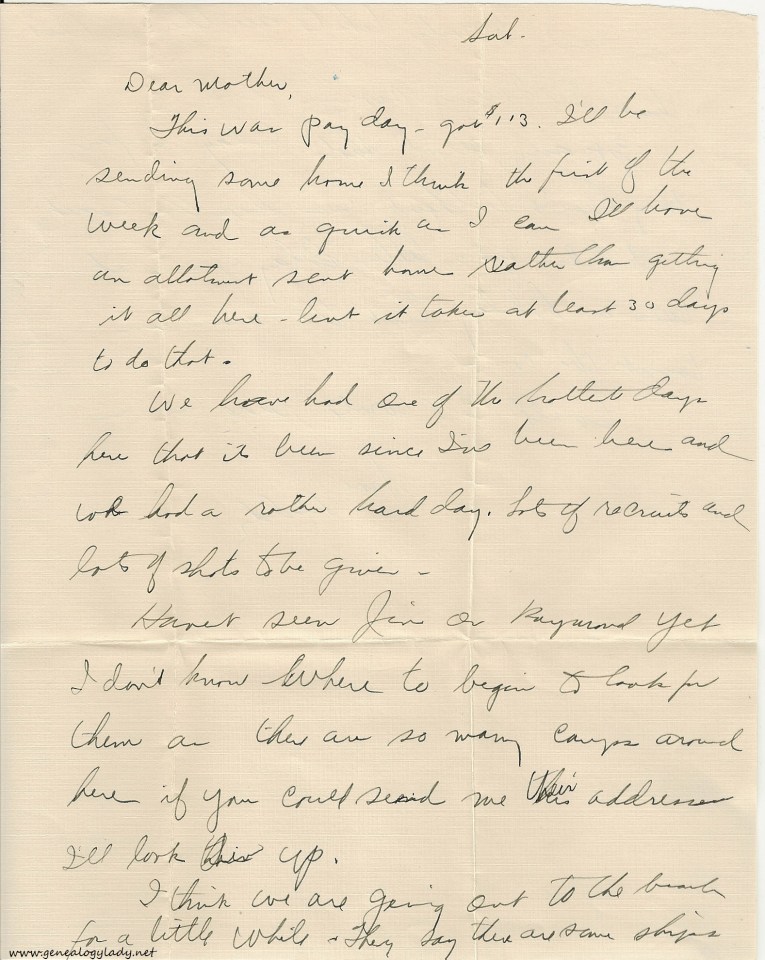 Sat.
Dear Mother,
This was pay day - got $113. I'll be
sending some home I think the first of the
week and as quick as I can I'll have
an allotment sent home rather than getting
it all here - but it takes at least 30 days
to do that.
We have had one of the hottest days
here that its been since I've been here and
we had a rather hard day. Lots of recruits and
lots of shots to be given -
Havet seen Jim or Raymond yet
I don't know where to begin to look for
them as there are so many camps around
here if you could send me their addresses
I'll look up.
I think we are going out to the beach
for a little while - They say there are some ships
www.genealogylady.net